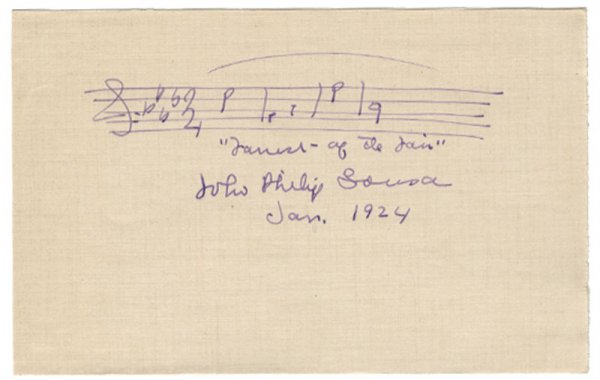 "Fairest of the Fair"
John Philip Sousa
Jan. 1924